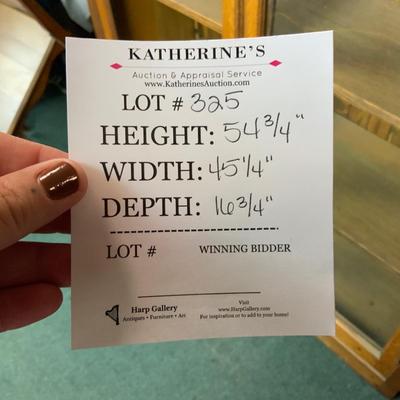 KATHERINE'S
Auction & Appraisal Service
www.KatherinesAuction.com
LOT # 325
HEIGHT: 54 3/4"
WIDTH: 45 1/4"
DEPTH: 16 3/4"
LOT # WINNING BIDDER
Harp Gallery
Antiques • Furniture • Art
Visit
www.HarpGallery.com
For inspiration or to add to your home!